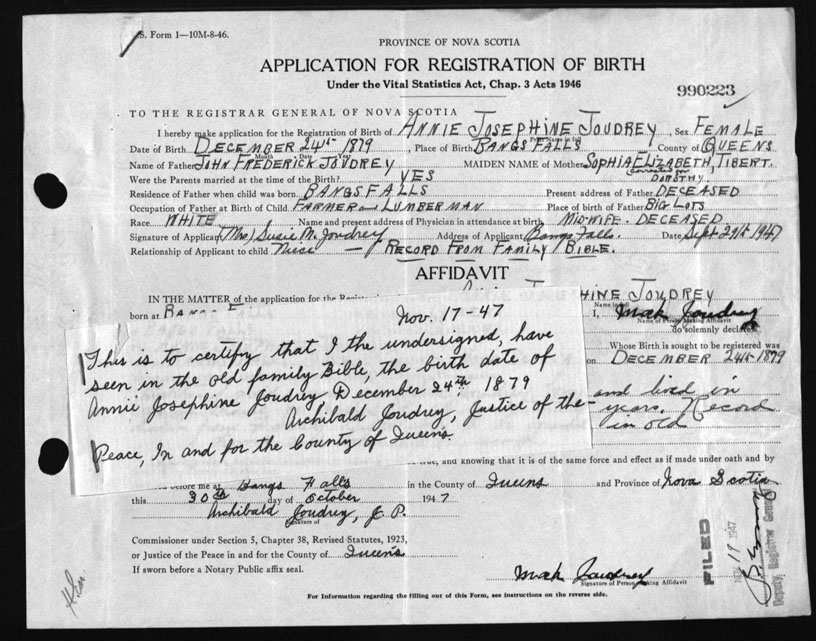 S. Form 1—10M-8-46.
PROVINCE OF NOVA SCOTIA
APPLICATION FOR REGISTRATION OF BIRTH
Under the Vital Statistics Act, Chap. 3 Acts 1946
990223
TO THE REGISTRAR GENERAL OF NOVA SCOTIA
I hereby make application for the Registration of Birth of ANNIE JOSEPHINE JOUDREY, Sex FEMALE
Date of Birth DECEMBER 24th 1879 Place of Birth BANGS FALLS County of QUEENS
Month Day Year
Name of Father JOHN FREDERICK JOUDREY MAIDEN NAME of Mother SOPHIA ELIZABETH, TIBERT.
Were the Parents married at the time of the Birth? YES DOROTHY.
Residence of Father when child was born BANGS FALLS Present address of Father DECEASED
Occupation of Father at Birth of Child FARMER and LUMBERMAN Place of birth of Father BIG LOTS
Race WHITE Name and present address of Physician in attendance at birth MID-WIFE. DECEASED
Signature of Applicant (Mrs) Susie M. Joudrey Address of Applicant Bangs Falls. Date Sept 29th 1947
Relationship of Applicant to child Niece — RECORD FROM FAMILY BIBLE.
AFFIDAVIT
IN THE MATTER of the application for the HINE JOUDREY
Name in full
born at BANGS F I, Mak Joudrey
Name of Person Making Affidavit
do solemnly declare
Whose Birth is sought to be registered was
on DECEMBER 24th 1879
and lived in
years. Record
in old
Nov. 17-47
This is to certify that I the undersigned, have
seen in the old family Bible, the birth date of
Annie Josephine Joudrey December 24th 1879
Archibald Joudrey, Justice of the
Peace, In and for the County of Queens.
true, and knowing that it is of the same force and effect as if made under oath and by
before me at Bangs Falls in the County of Queens and Province of Nova Scotia
this 30th day of October 1947
Archibald Joudrey, J.P.
Signature of
Commissioner under Section 5, Chapter 38, Revised Statutes, 1923,
or Justice of the Peace in and for the County of Queens
If sworn before a Notary Public affix seal.
Mak Joudrey
Signature of Person Making Affidavit
For Information regarding the filling out of this Form, see instructions on the reverse side.
FILED
19 1947
Deputy Registrar General